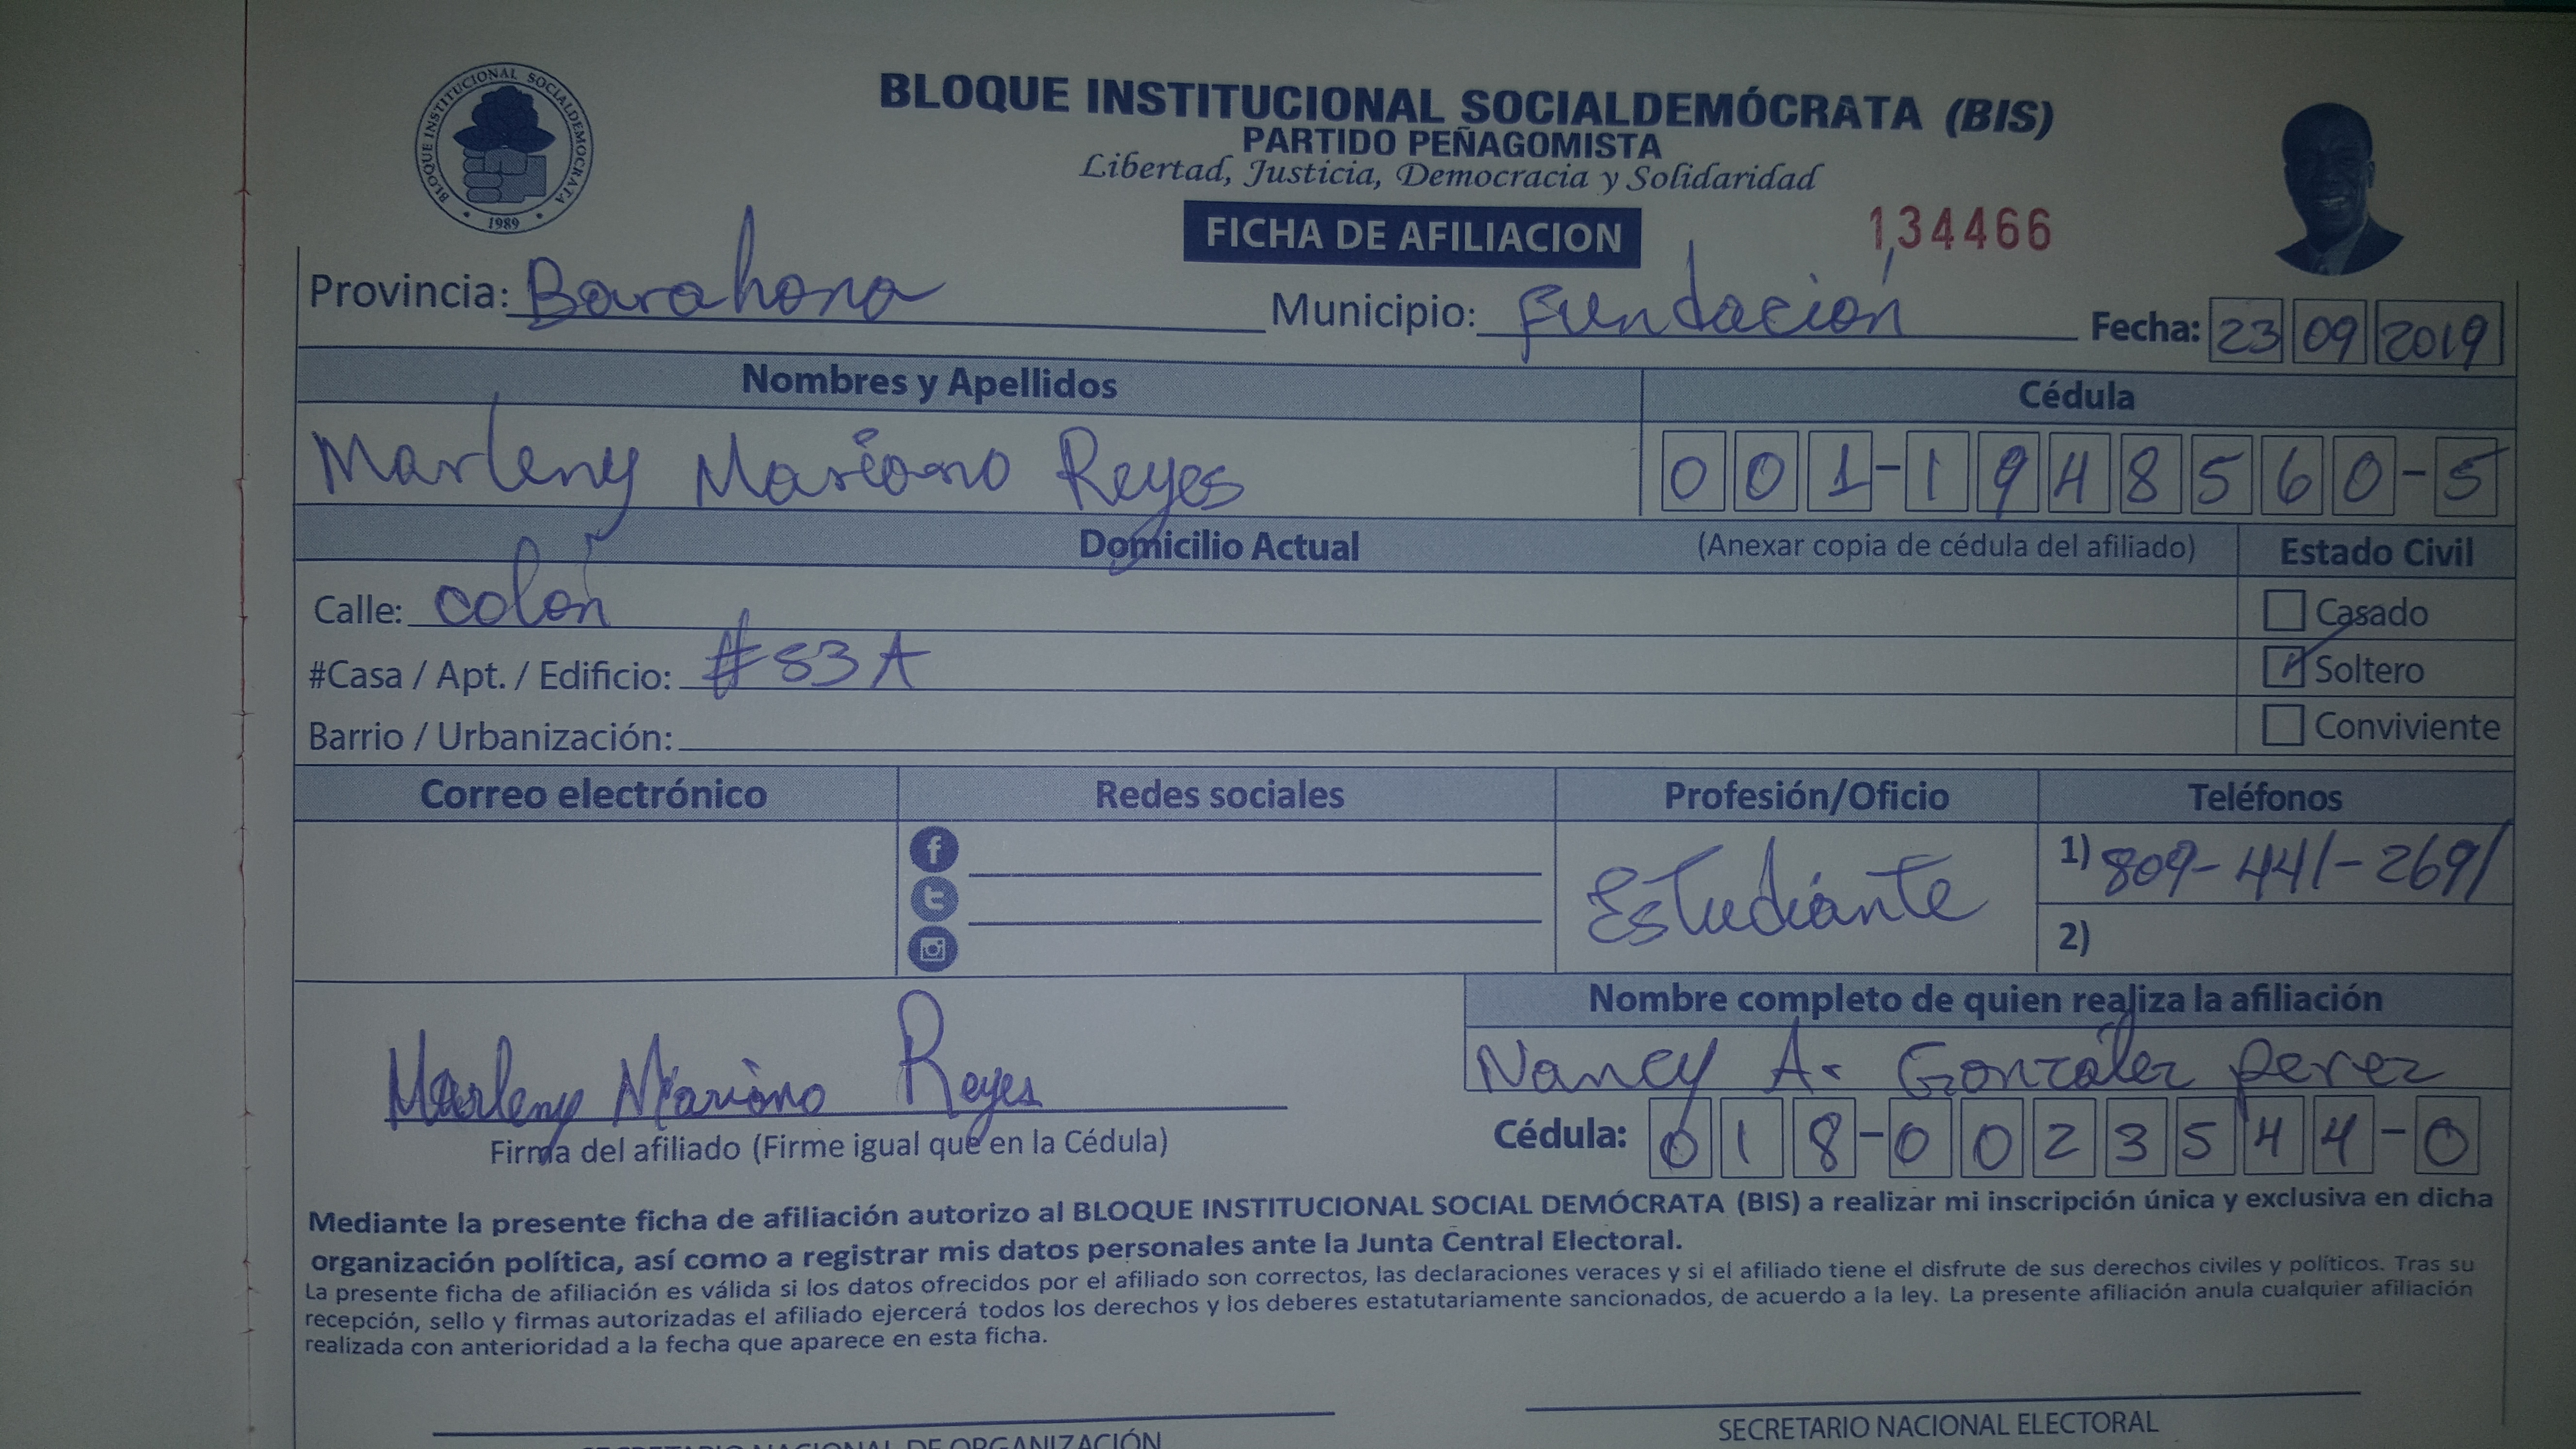 BLOQUE INSTITUCIONAL SOCIALDEMOCRATA
1989
BLOQUE INSTITUCIONAL SOCIALDEMÓCRATA (BIS)
PARTIDO PEÑAGOMISTA
Libertad, Justicia, Democracia y Solidaridad
FICHA DE AFILIACION 134466
Provincia: Barahona Municipio: Fundación Fecha: 23 09 2019
Nombres y Apellidos Cédula
Marleny Mariano Reyes 001-1948560-5
Domicilio Actual (Anexar copia de cédula del afiliado) Estado Civil
Calle: colón Casado
#Casa / Apt. / Edificio: #83A Soltero
Barrio / Urbanización: Conviviente
Correo electrónico Redes sociales Profesión/Oficio Teléfonos
Estudiante 1) 809-441-2691
2)
Nombre completo de quien realiza la afiliación
Nancy A. González perez
Marleny Mariano Reyes
Firma del afiliado (Firme igual que en la Cédula) Cédula: 018-0023544-0
Mediante la presente ficha de afiliación autorizo al BLOQUE INSTITUCIONAL SOCIAL DEMÓCRATA (BIS) a realizar mi inscripción única y exclusiva en dicha
organización política, así como a registrar mis datos personales ante la Junta Central Electoral.
La presente ficha de afiliación es válida si los datos ofrecidos por el afiliado son correctos, las declaraciones veraces y si el afiliado tiene el disfrute de sus derechos civiles y políticos. Tras su
recepción, sello y firmas autorizadas el afiliado ejercerá todos los derechos y los deberes estatutariamente sancionados, de acuerdo a la ley. La presente afiliación anula cualquier afiliación
realizada con anterioridad a la fecha que aparece en esta ficha.
SECRETARIO NACIONAL DE ORGANIZACIÓN SECRETARIO NACIONAL ELECTORAL